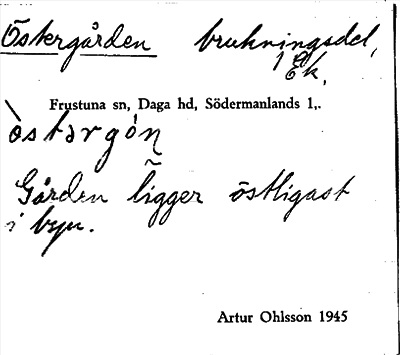 Östergården brukningsdel,
Ek,
Frustuna sn, Daga hd, Södermanlands l,.
òstərgó̰n
Gården ligger östligast
i byn.
Artur Ohlsson 1945